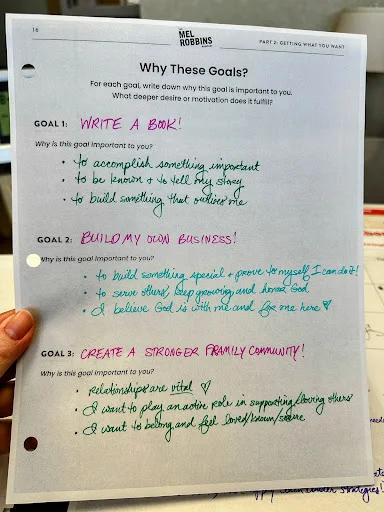 16
MEL
ROBBINS
PART 2: GETTING WHAT YOU WANT
Why These Goals?
For each goal, write down why this goal is important to you.
What deeper desire or motivation does it fulfill?
GOAL 1: WRITE A BOOK!
Why is this goal important to you?
• to accomplish something important
• to be known + to tell my story
• to build something that outlives me
GOAL 2: BUILD MY OWN BUSINESS!
Why is this goal important to you?
• to build something special + prove to myself I can do it!
• to serve others, keep growing and honor God
• I believe God is with me and for me here ♡
GOAL 3: CREATE A STRONGER FRAMILY COMMUNITY!
Why is this goal important to you?
• Relationships are vital ♡
• I want to play an active role in supporting/loving others
• I want to belong and feel loved/known/secure
strategies!